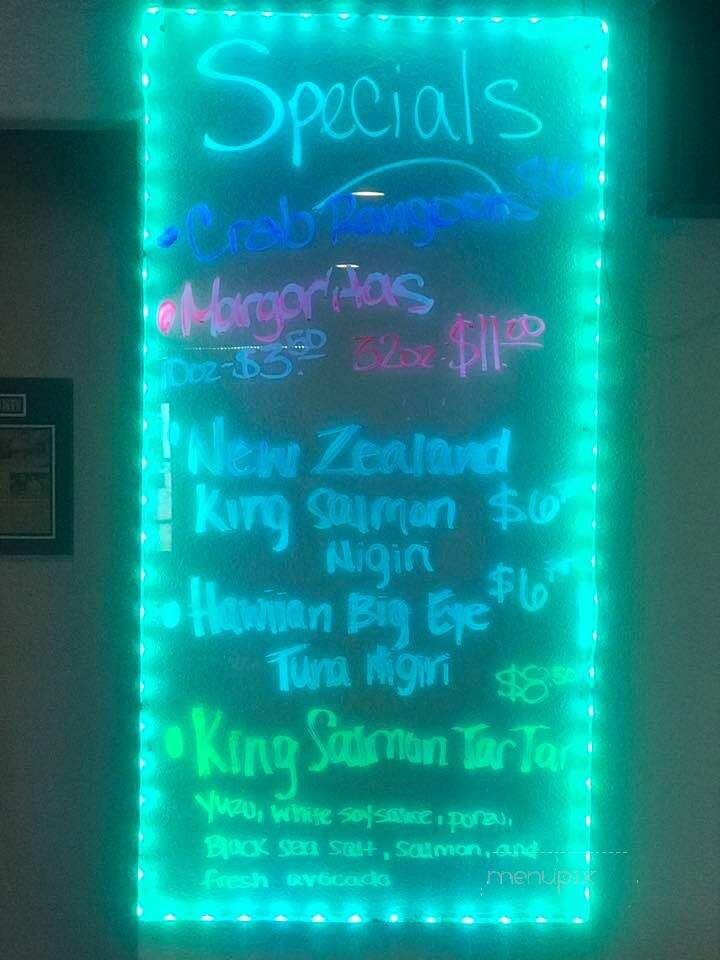 Specials
• Crab Rangoons
• Margaritas
10oz - $3.50 32oz $11.00
• New Zealand
King Salmon $6
Nigiri
• Hawiian Big Eye $6
Tuna Nigiri
$8.50
• King Salmon Tar Tar
Yuzu, white soy sauce, ponzu,
Black sea salt, salmon, and
fresh avocado
menupix